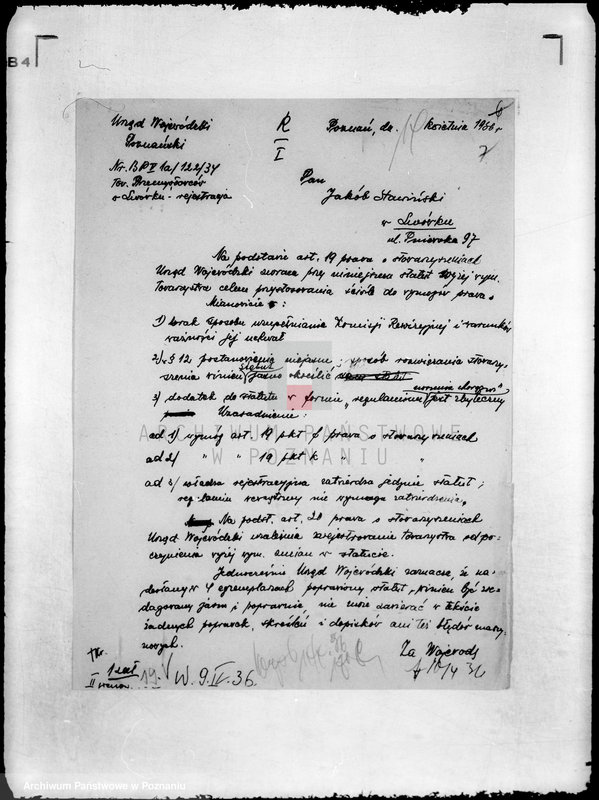 B4
Urząd Wojewódzki
Poznański
R
I
Poznań, dn. 14 kwietnia 1936 r
7
Nr. BPV 1a/122/34
Tow. Przemysłowców
w Lwówku - rejestracja
Pan
Jakób Sławiński
w Lwówku
ul. Pniewska 97
Na podstawie art. 19 prawa o stowarzyszeniach
Urząd Wojewódzki zwraca przy niniejszem statut wyżej wym.
Towarzystwa celem przystosowania ściśle do wymogów prawa.
Mianowicie:
1) brak sposobu uzupełniania Komisji Rewizyjnej i warunków
ważności jej uchwał
2) § 12 postanowienie niejasne, sposób rozwiązania stowarzy-
szenia winien statut jasno określić
3) dodatek do statutu w formie „regulaminu" jest zbyteczny
Uzasadnienie:
ad 1) wymóg art. 19 pkt f prawa o stowarzyszeniach
ad 2) " " 19 pkt k " "
ad 3) władza rejestracyjna zatwierdza jedynie statut;
regulamin wewnętrzny nie wymaga zatwierdzenia.
Na podst. art. 20 prawa o stowarzyszeniach
Urząd Wojewódzki uzależnia zarejestrowanie towarzystwa od po-
czynienia wyżej wym. zmian w statucie.
Jednocześnie Urząd Wojewódzki zaznacza, że na-
desłany w 4 egzemplarzach poprawiony statut, winien być zre-
dagowany jasno i poprawnie, nie może zawierać w tekście
żadnych poprawek, skreśleń i dopisków ani też błędów maszy-
nowych.
Za Wojewodę
1 zał
II
19.
W. 9.IV.36.
ARCHIWUM PAŃSTWOWE
W POZNANIU
Archiwum Państwowe w Poznaniu